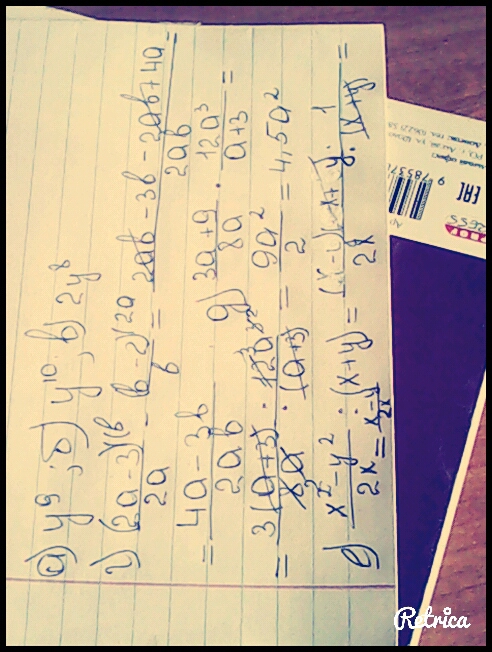 а) y⁹; б) y¹⁰; в) 2y⁸
г) (2a-3)^(b / 2a - (b-2)^(2a / b = 2ab-3b-2ab+4a / 2ab =
= 4a-3b / 2ab д) 3a+9 / 8a · 12a³ / a+3 =
= 3(a+3) · 12a³ / 8a · (a+3) = 9a² / 2 = 4,5a²
е) x²-y² / 2x : (x+y) = (x-y)(x+y) · 1 / 2x · (x+y) =
= x-y / 2x
Retrica